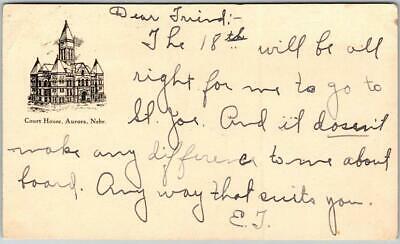 Dear Friend:-
The 18th will be all
right for me to go to
St. Joe. And it doesn't
make any difference to me about
board. Any way that suits you.
E. T.
Court House, Aurora, Nebr.